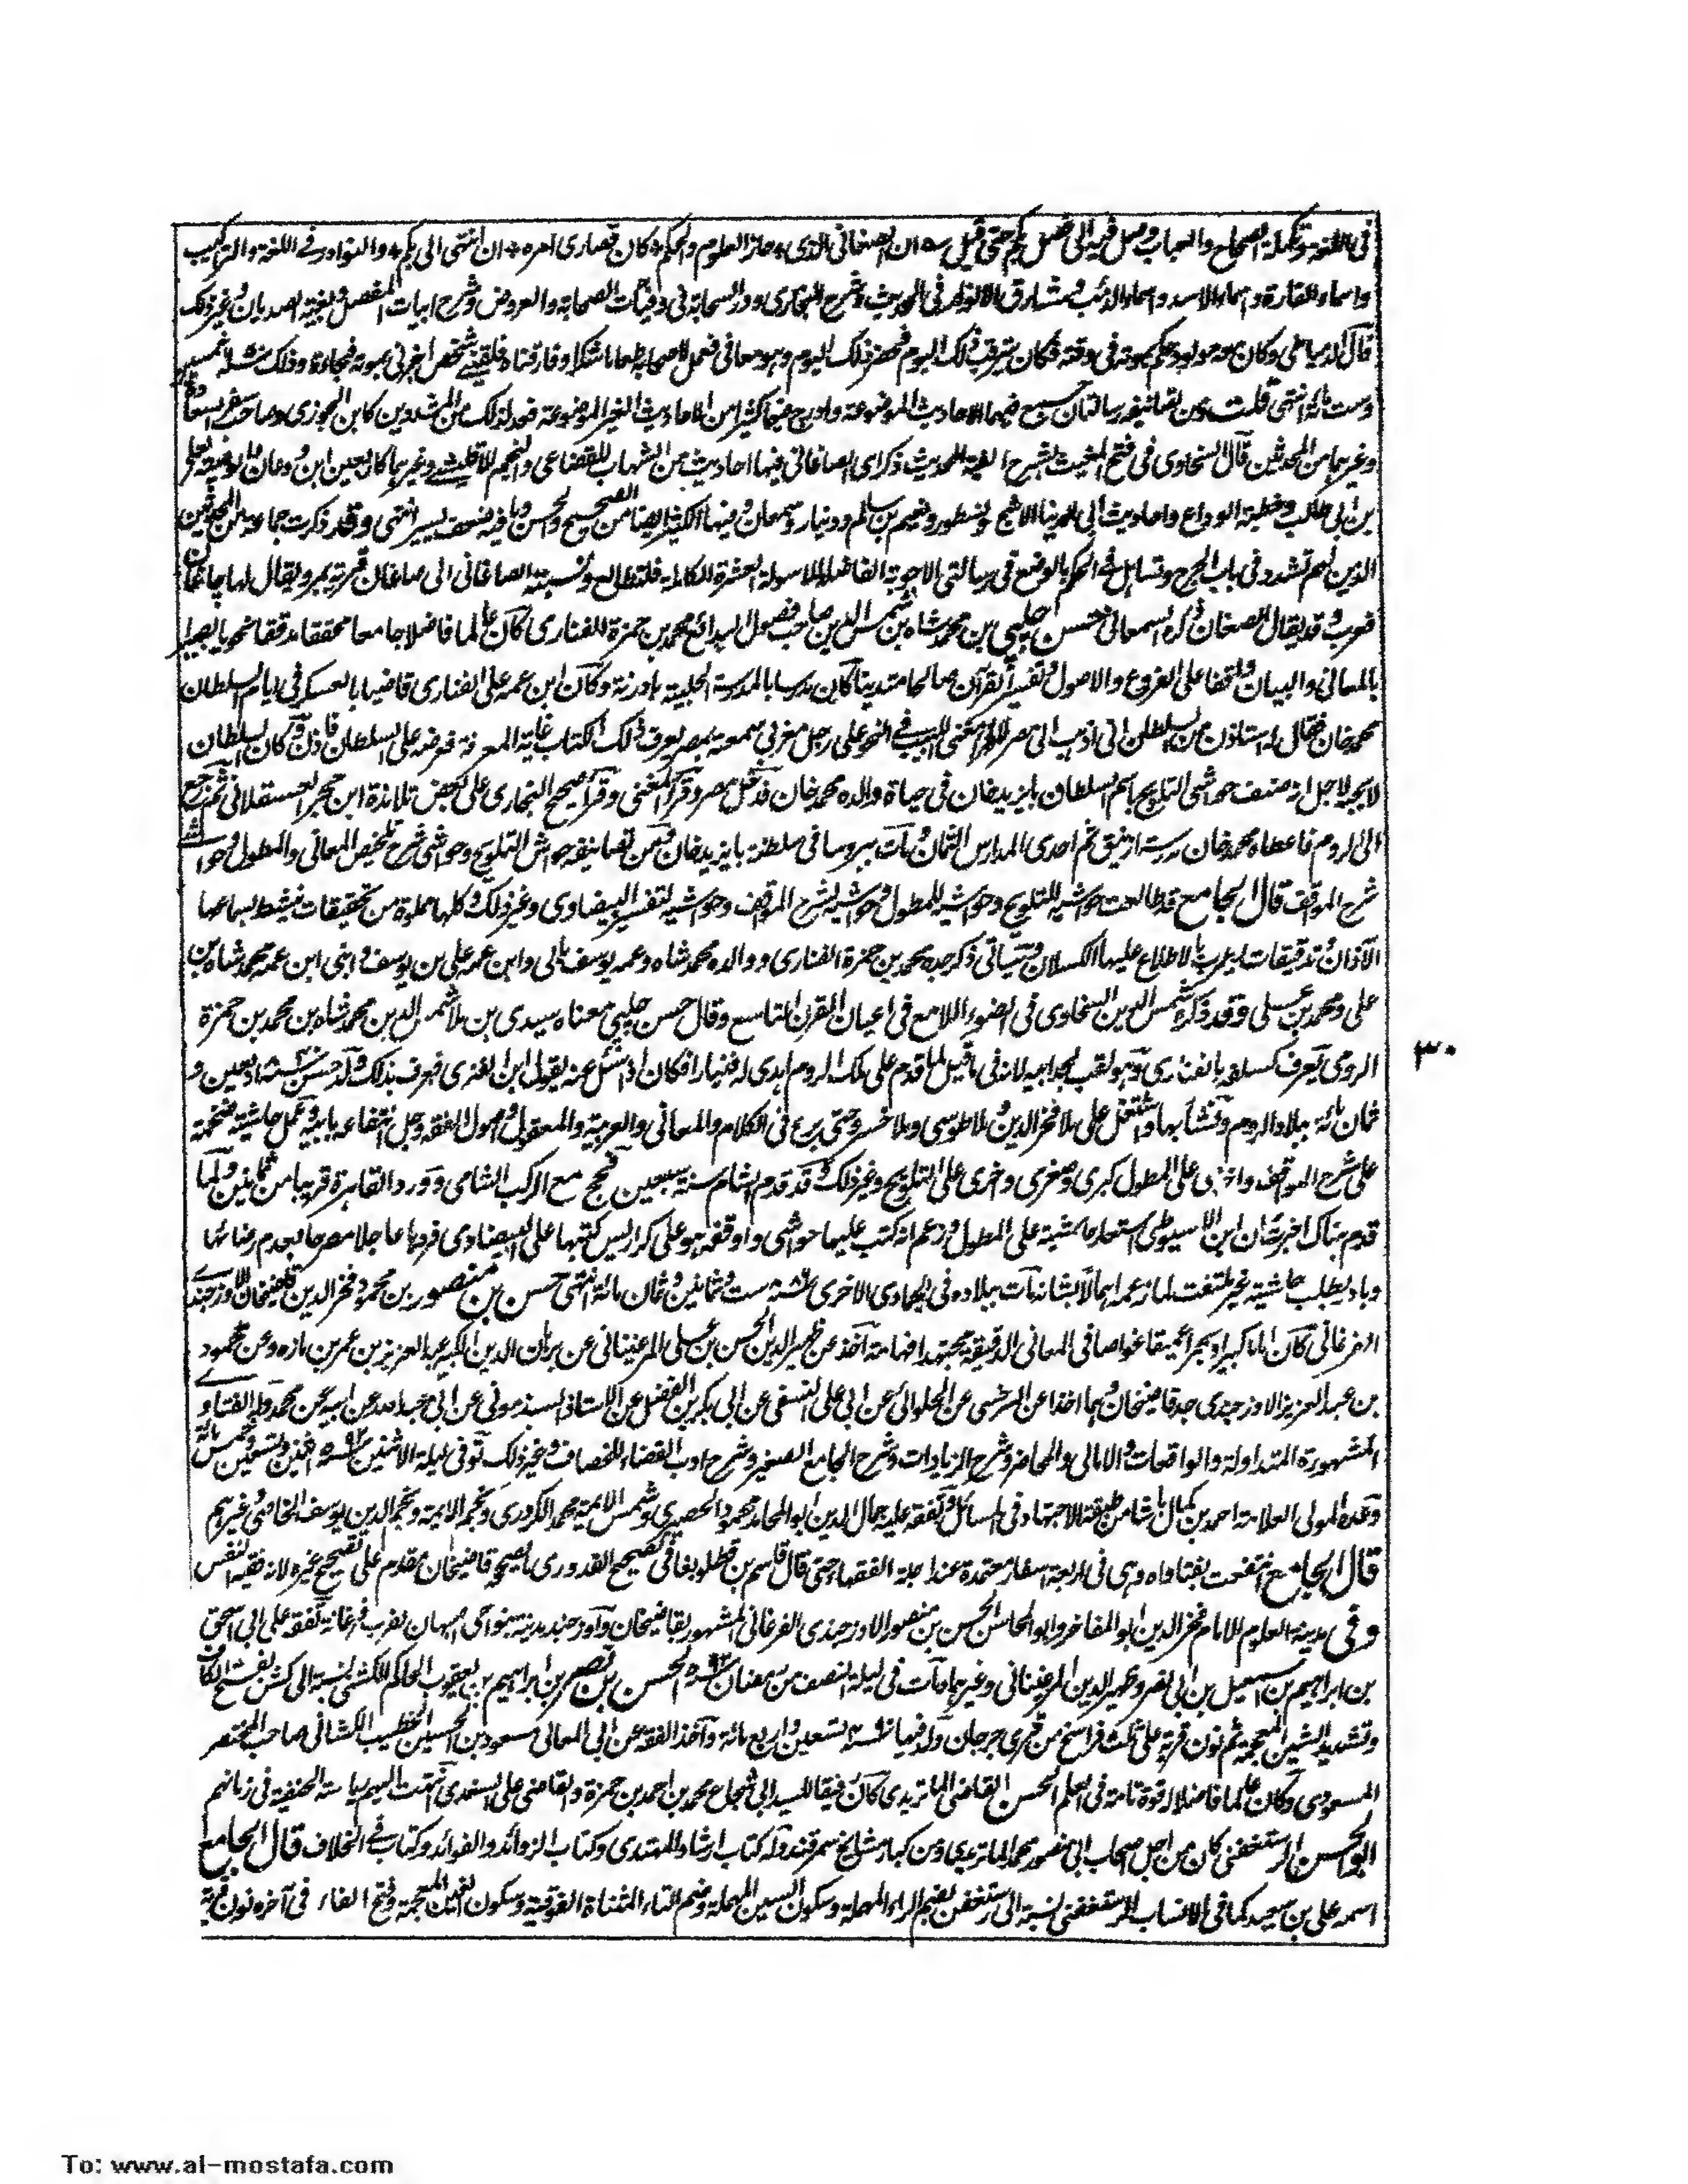 فى اللغة وتكملة الصحاح والعباب وصل فيه الى فصل بكم حتى قيل ے ان الصغانى الذى * حاز العلوم والحكم * كان قصارى امره * ان انتهى الى بكم * والنوادر فى اللغة والتراكيب
واسماء الفارة واسماء الاسد واسماء الذئب ومشارق الانوار فى الحديث وشرح البخارى ودر السحابة فى وفيات الصحابة والعروض وشرح ابيات المفصل وبغية الصديان وغير ذلك
قال الدمياطى وكان معه مولود وحكم بموته فى وقته فكان يترقب ذلك اليوم فحضر ذلك اليوم وهو معافى فعمل لاصحابه طعاما شكرا وفارقناه فلقينى شخص اخبرنى بموته فجاءة وذلك سنة خمسين
وست مائة انتهى قلت ومن تصانيفه رسالتان جمع فيهما الاحاديث الموضوعة وادرج فيهما كثيرا من الاحاديث الغير الموضوعة فعد لذلك من المشددين كابن الجوزى وصاحب سفر السعادة
وغيرهما من المحدثين قال السخاوى فى فتح المغيث بشرح الفية الحديث ذكر اى الصاغانى فيها احاديث من الشهاب للقضاعى والنجم للاقليشى وغيرهما كاربعين ابن ودعان
بن ابى طالب وخطبة الوداع واحاديث ابى الدنيا الاشج ونسطور ونعيم بن سالم ودينار وسمعان وفيها الكثير ايضا من الصحيح والحسن وما فيه ضعف يسير انتهى وقد ذكرت جماعة من المحدثين
الذين لهم تشدد فى باب الجرح وتساهل فى الحكم بالوضع فى رسالتى الاجوبة الفاضلة للاسولة العشرة الكاملة فلتطالع ونسبة الصاغانى الى صاغان قرية بمرو يقال لها چاغان
فعرب وقد يقال الصغان ذكره السمعانى حسن چلپى بن محمد شاه بن شمس الدين صاحب فصول البدائع محمد بن حمزة الفنارى كان عالما فاضلا جامعا محققا مدققا نحويا بصيرا
بالمعانى والبيان مطلعا على الفروع والاصول وتفسير القرآن صالحا متدينا كان مدرسا بالمدرسة الحلبية بادرنة وكان ابن عمه على الفنارى قاضيا بالعسكر فى ايام السلطان
محمد خان فقال له استاذن من السلطان انى اذهب الى مصر لاقرأ مغنى اللبيب فى النحو على رجل مغربى سمعته بمصر يعرف ذلك الكتاب غاية المعرفة فعرضه على السلطان فاذن وكان السلطان
لا يحبه لاجل انه صنف حواشى التلويح باسم السلطان بايزيد خان فى حياة والده محمد خان فدخل مصر وقرأ المغنى وقرأ صحيح البخارى على بعض تلامذة ابن حجر العسقلانى ثم حج ورجع
الى الروم فاعطاه محمد خان مدرسة ازنيق ثم احدى المدارس الثمان ومات ببروسا فى سلطنة بايزيد خان ومن تصانيفه حواشى التلويح وحواشى شرح تلخيص المعانى والمطول وحواشى
شرح المواقف قال الجامع قد طالعت حواشيه للتلويح وحواشيه للمطول وحواشيه لشرح المواقف وحواشيه لتفسير البيضاوى وغير ذلك وكلها مملوة من تحقيقات ينشط بسماعها
الآذان وتدقيقات يطرب بالاطلاع عليها الكسلان وسياتى ذكر جده محمد بن حمزة الفنارى ووالده محمد شاه وعمه يوسف بالى وابن عمه على بن يوسف وابنى ابن عمه محمد شاه بن
على ومحمد بن على وقد ذكره شمس الدين السخاوى فى الضوء اللامع فى اعيان القرن التاسع وقال حسن چلپى معناه سيدى بن ملا شمس الدين محمد شاه بن محمد بن حمزة
الرومى يعرف كسلفه بالفنارى وهو لقب لجد ابيه لانه فى ما قيل لما قدم على ملك الروم اهدى له فنيارا فكان اذا سئل عنه يقول ابن الفنرى فعرف بذلك ولد حسن سنة اربعين و
ثمان مائة ببلاد الروم ونشأ بها واشتغل على ملا فخر الدين وملا طوسى وملا خسرو حتى برع فى الكلام والمعانى والعربية والمعقول واصول الفقه وجل انتفاعه بابيه وعمل حاشية ضخمة
على شرح المواقف واخرى على المطول كبرى وصغرى واخرى على التلويح وغير ذلك وقد قدم الشام سنة سبعين فحج مع الركب الشامى وورد القاهرة قريبا من ثمانين ولما
قدم هناك اخبرت ان ابن الاسيوطى استعار حاشيته على المطول وزعم انه كتب عليها حواشى واوقفه هو على كراريس كتبها على البيضاوى فردها عاجلا مصرحا بعدم رضائها
وبادر يطلب حاشيته غير ملتفت لما زعمه اهمالا بشانه مات ببلاده فى الجمادى الاخرى سنة ست وثمانين وثمان مائة انتهى حسن بن منصور بن محمود فخر الدين قاضيخان الاوزجندى
الفرغانى كان اماما كبيرا وبحرا عميقا غواصا فى المعانى الدقيقة مجتهدا فهامة اخذ عن ظهير الدين الحسن بن على المرغينانى عن برهان الدين الكبير عبد العزيز بن عمر بن مازه وعن محمود
بن عبد العزيز الاوزجندى جد قاضيخان وهما اخذا عن السرخسى عن الحلوائى عن ابى على النسفى عن ابى بكر بن الفضل عن الاستاذ السبذمونى عن ابى عبد الله عن ابيه عن محمد وله الفتاوى
المشهورة المتداولة والواقعات والامالى والمحاضر وشرح الزيادات وشرح الجامع الصغير وشرح ادب القضاء للخصاف وغير ذلك توفى ليلة الاثنين سنة ٥٩٢ اثنين وتسعين وخمس مائة
وعده المولى العلامة احمد بن كمال باشا من طبقة الاجتهاد فى المسائل وتفقه عليه جمال الدين ابو المحامد محمود الحصيرى وشمس الائمة محمد الكردرى ونجم الائمة ونجم الدين يوسف الخاصى وغيرهم
قال الجامع انتفعت بفتاواه وهى فى اربعة اسفار معتمدة عند اجلة الفقهاء حتى قال قاسم بن قطلوبغا فى تصحيح القدورى ما يصححه قاضيخان مقدم على تصحيح غيره لانه فقيه النفس
وفى مدينة العلوم الامام فخر الدين ابو المفاخر وابو المحاسن الحسن بن منصور الاوزجندى الفرغانى المشهور بقاضيخان واوزجند مدينة بنواحى اصبهان بقرب فرغانة تفقه على ابى اسحق
بن ابراهيم بن اسمعيل بن ابى نصر وظهير الدين المرغينانى وغيرهما مات فى ليلة النصف من رمضان سنة ٥٩٢ الحسن بن نصر بن ابراهيم بن يعقوب الحاكم الكشنى نسبة الى كشن بفتح الكاف
وتشديد الشين المعجمة ثم نون قرية على ثلث فراسخ من قرى جرجان ولد فيها سنة تسعين واربع مائة واخذ الفقه عن ابى المعالى مسعود بن الحسين الخطيب الكشانى صاحب المختصر
المسعودى وكان عالما فاضلا له قوة تامة فى العلم الحسن القاضى الماتريدى كان رفيقا للسيد ابى شجاع محمد بن احمد بن حمزة والقاضى على السغدى انتهت اليهم رياسة الحنفية فى زمانهم
ابو الحسن الرستغفنى كان من اجل اصحاب ابى منصور محمد الماتريدى ومن كبار مشايخ سمرقند وله كتاب ارشاد المهتدى وكتاب الزوائد والفوائد وكتاب فى الخلاف قال الجامع
اسمه على بن سعيد كما فى الانساب الرستغفنى نسبة الى رستغفن بضم الراء المهملة وسكون السين المهملة وضم التاء المثناة الفوقية وسكون الغين المعجمة وفتح الفاء فى آخره نون قرية
٣٠
To: www.al-mostafa.com